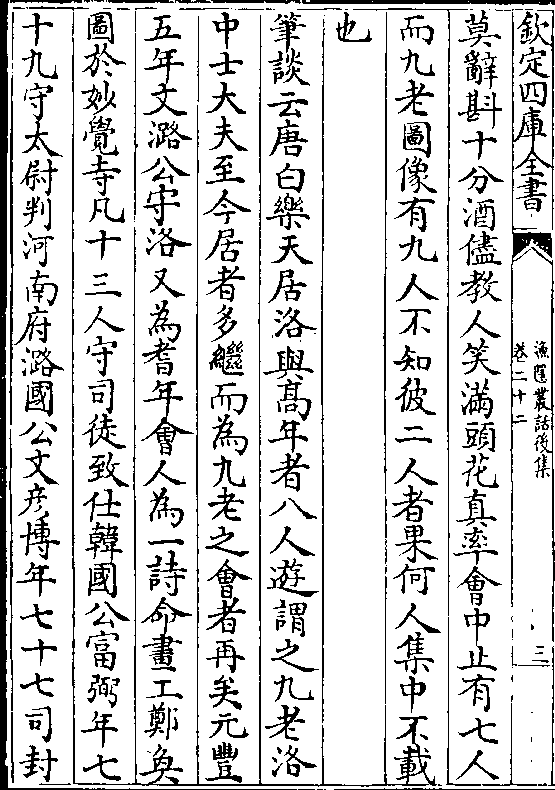 欽定四庫全書
漁隱叢話後集
卷二十二
三
莫辭斟十分酒儘教人笑滿頭花真率會中止有七人
而九老圖像有九人不知彼二人者果何人集中不載
也
筆談云唐白樂天居洛與髙年者八人遊謂之九老洛
中士大夫至今居者多繼而為九老之會者再矣元豐
五年文潞公守洛又為耆年會人為一詩命畫工鄭奐
圖於妙覺寺凡十三人守司徒致仕韓國公富弼年七
十九守太尉判河南府潞國公文彦博年七十七司封